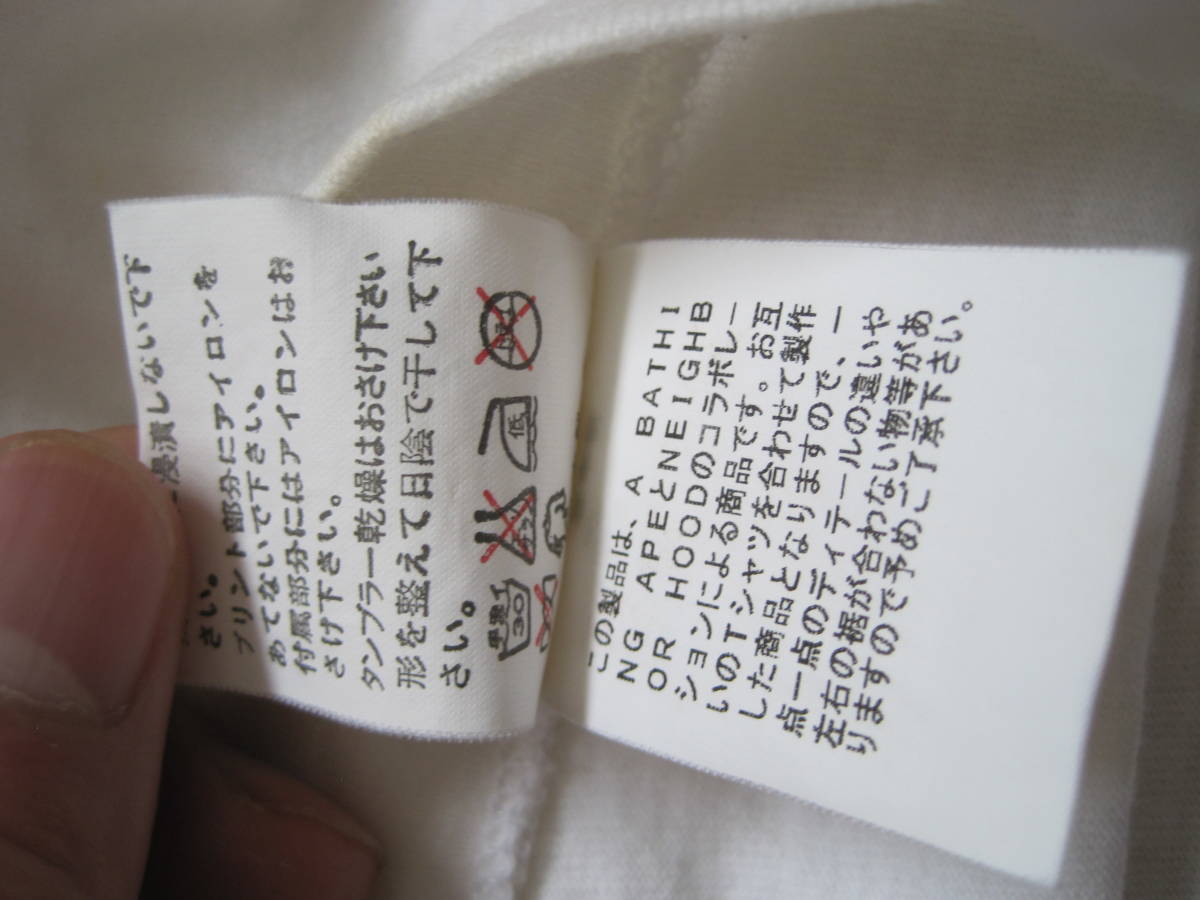 浸漬しないで下
さい。
プリント部分にアイロンを
あてないで下さい。
付属部分にはアイロンはお
さけ下さい。
タンブラー乾燥はおさけ下さい
形を整えて日陰で干して下
さい。
手洗イ
30
低
この製品は、A BATHI
NG APEとNEIGHB
OR HOODのコラボレー
ションによる商品です。お互
いのTシャツを合わせて製作
した商品となりますので、一
点一点のディテールの違いや
左右の裾が合わない物等があ
りますので予めご了承下さい。